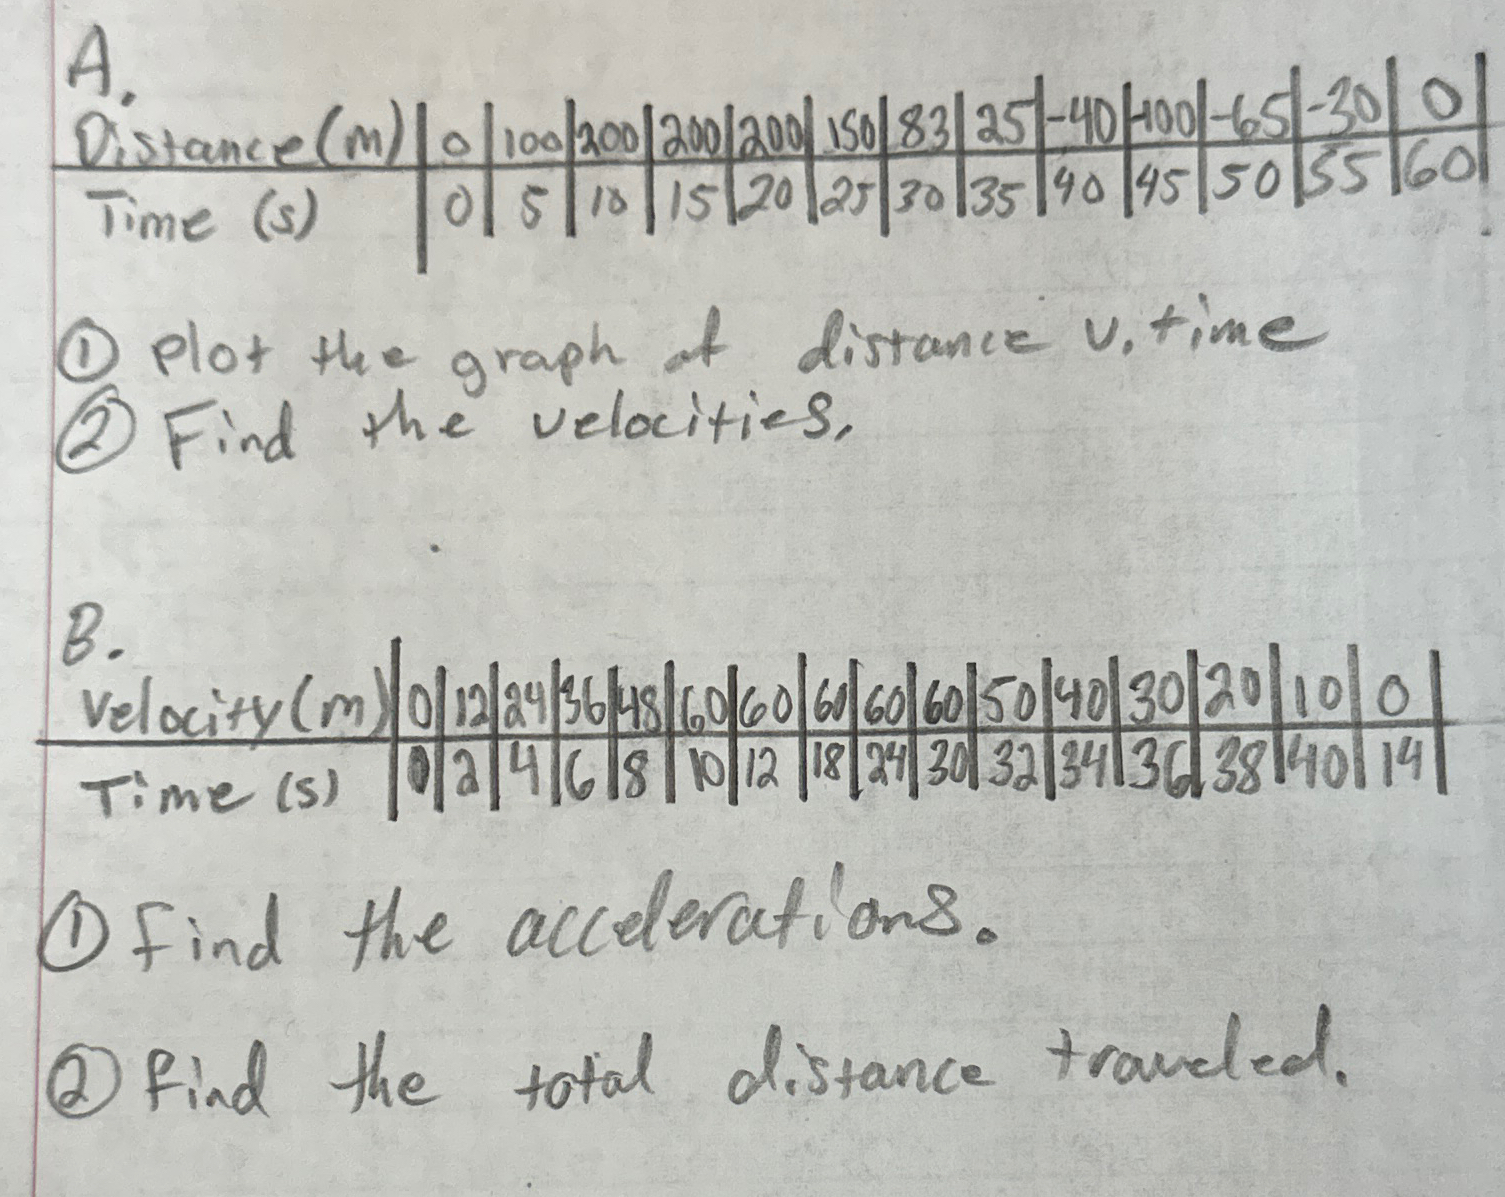 A.
Distance (m) | 0 | 100 | 200 | 200 | 200 | 150 | 83 | 25 | -40 | -100 | -65 | -30 | 0 |
Time (s) | 0 | 5 | 10 | 15 | 20 | 25 | 30 | 35 | 40 | 45 | 50 | 55 | 60 |
① Plot the graph of distance v. time
② Find the velocities.
B.
Velocity (m) | 0 | 12 | 24 | 36 | 48 | 60 | 60 | 60 | 60 | 60 | 50 | 40 | 30 | 20 | 10 | 0 |
Time (s) | 0 | 2 | 4 | 6 | 8 | 10 | 12 | 18 | 24 | 30 | 32 | 34 | 36 | 38 | 40 | 14 |
① find the accelerations.
② find the total distance traveled.